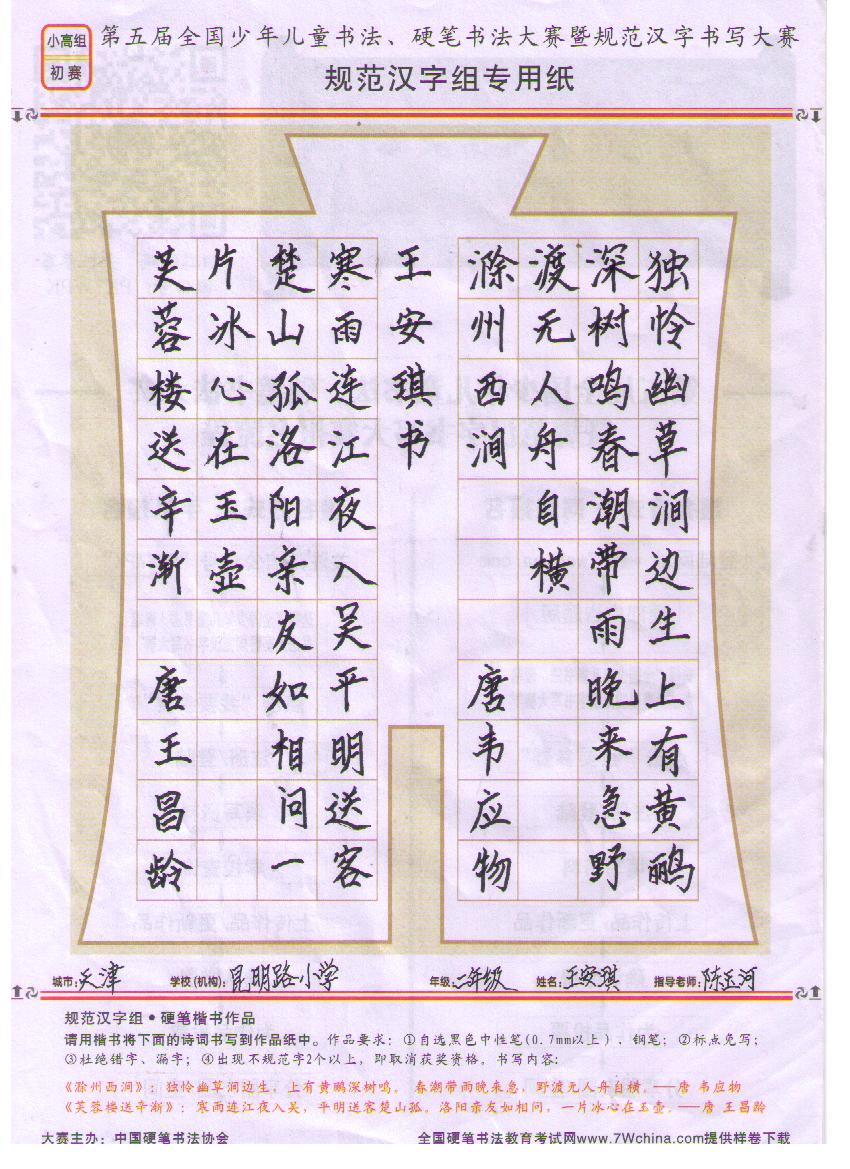 小高组
初赛
第五届全国少年儿童书法、硬笔书法大赛暨规范汉字书写大赛
规范汉字组专用纸
独怜幽草涧边生上有黄鹂
深树鸣春潮带雨晚来急野
渡无人舟自横
滁州西涧 唐韦应物
王安琪书
寒雨连江夜入吴平明送客
楚山孤洛阳亲友如相问一
片冰心在玉壶
芙蓉楼送辛渐 唐王昌龄
城市:天津 学校(机构):昆明路小学 年级:二年级 姓名:王安琪 指导老师:陈玉河
规范汉字组●硬笔楷书作品
请用楷书将下面的诗词书写到作品纸中。作品要求：①自选黑色中性笔(0.7mm以上)、钢笔；②标点免写；
③杜绝错字、漏字；④出现不规范字2个以上，即取消获奖资格，书写内容：
《滁州西涧》：独怜幽草涧边生，上有黄鹂深树鸣。春潮带雨晚来急，野渡无人舟自横。——唐 韦应物
《芙蓉楼送辛渐》：寒雨连江夜入吴，平明送客楚山孤。洛阳亲友如相问，一片冰心在玉壶。——唐 王昌龄
大赛主办：中国硬笔书法协会 全国硬笔书法教育考试网www.7Wchina.com提供样卷下载